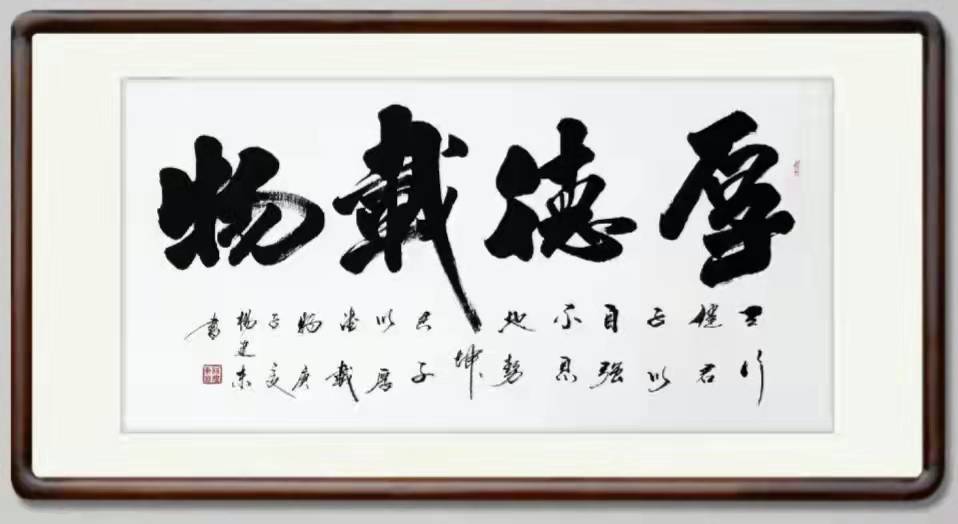 厚德載物
天行
健君
子以
自强
不息
地勢
坤
君子
以厚
德載
物庚
子夏
楊建
書